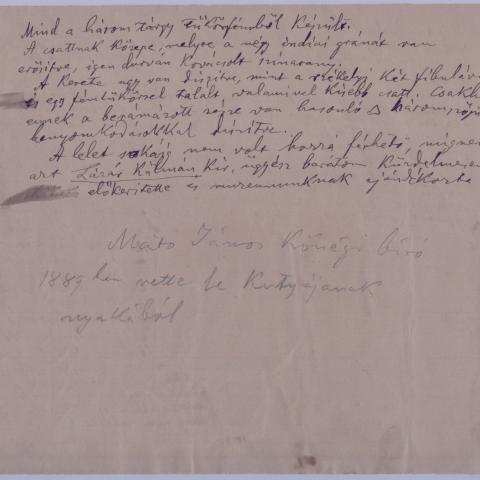 Mind a három tárgy tükörfémből készült.
A csattnak közepe, melyre a négy indiai gránát van
erősitve, igen durván kovácsolt szinarany.
A kerete ugy van diszitve, mint a székelyi két fibulával
és egy fémtükörrel talált valamivel kisebb csatt. Csakhogy
ennek a bezamárott szélye van hasonló Δ három
benyomkodásokkal diszitve.
A lelet sokáig nem volt hozzá férhető, mignem
azt Lázár Kálmán kir. ügyész barátom küzdelmesen
előkeritette és muzeumunknak ajándékozta
Mató János községi biró
1889 ben vette le kutyájának
nyakából